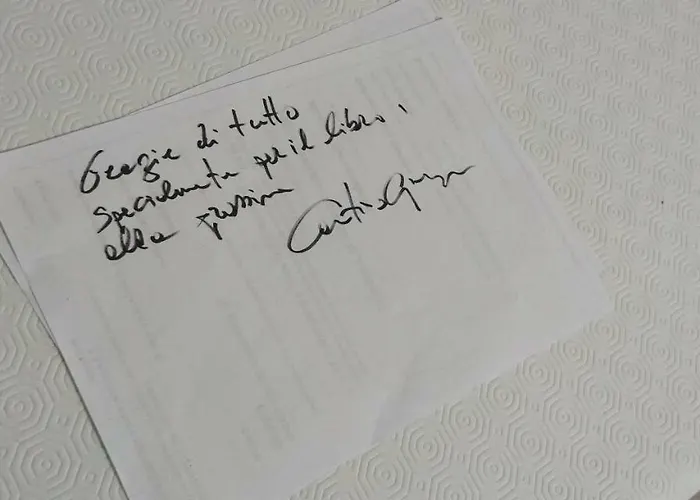 Grazie di tutto
specialmente per il libro,
alla prossima